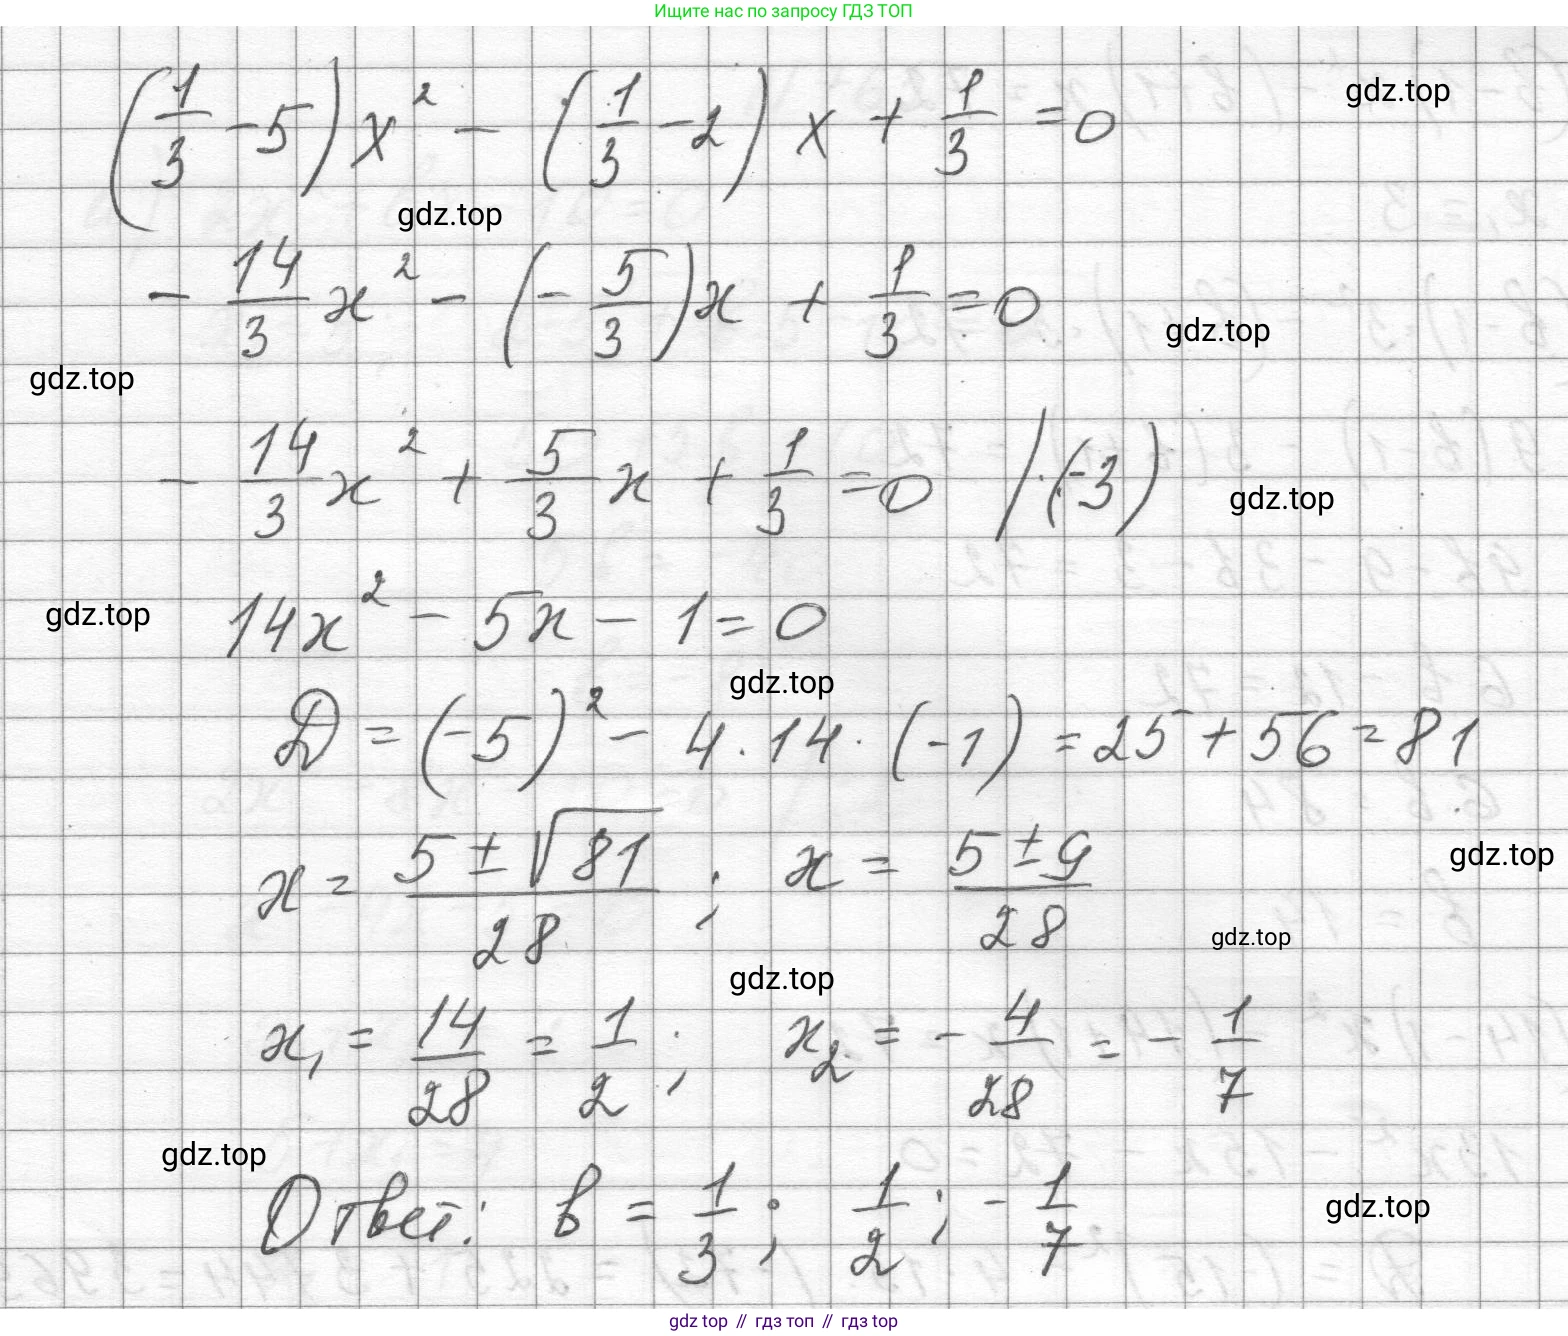 Ищите нас по запросу ГДЗ ТОП
(1/3 − 5) x² − (1/3 − 2) x + 1/3 = 0
gdz.top
gdz.top
− 14/3 x² − (− 5/3) x + 1/3 = 0
gdz.top
gdz.top
− 14/3 x² + 5/3 x + 1/3 = 0 / · (−3)
gdz.top
gdz.top
14x² − 5x − 1 = 0
gdz.top
D = (−5)² − 4 · 14 · (−1) = 25 + 56 = 81
x = (5 ± √81)/28 ; x = (5 ± 9)/28
gdz.top
gdz.top
gdz.top
x₁ = 14/28 = 1/2 ; x₂ = − 4/28 = − 1/7
gdz.top
Ответ: в = 1/3 ; 1/2 ; − 1/7
gdz.top
gdz top // гдз топ // гдз top